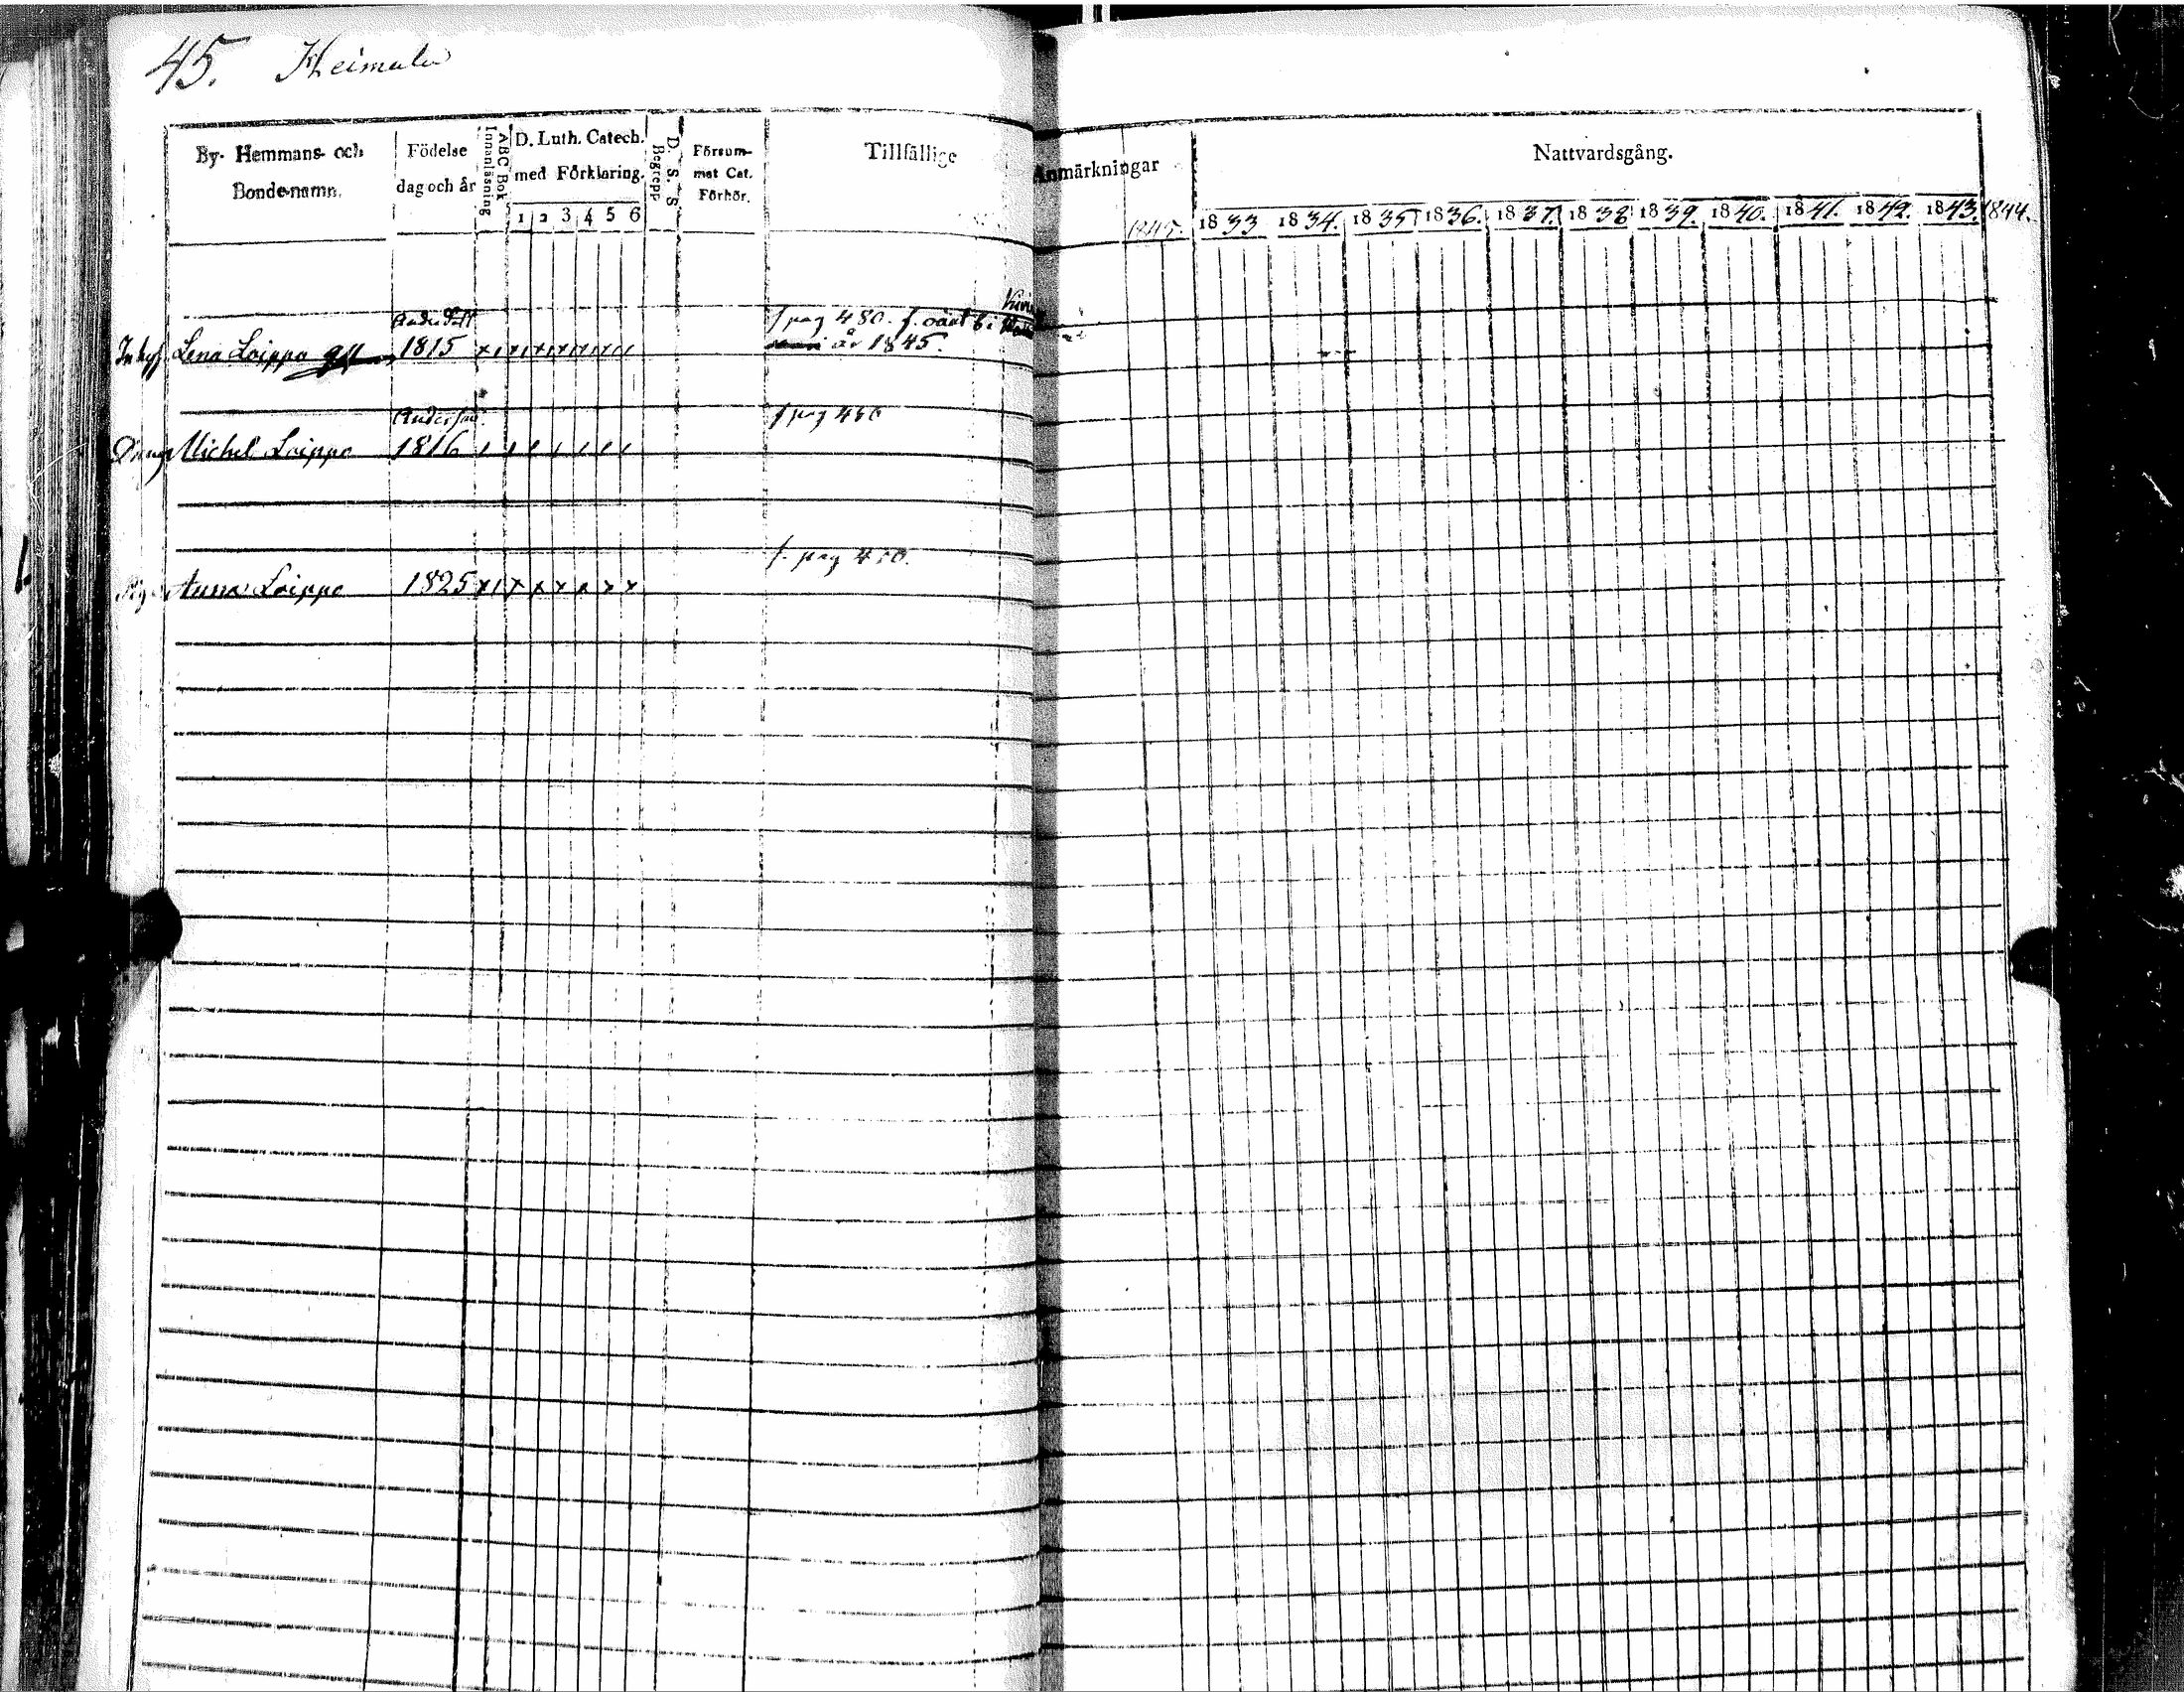 45. Heimala
By- Hemmans- och Bonde-namn.
Födelse dag och år
ABC Bok Innanläsning
D. Luth. Catech. med Förklaring.
1 2 3 4 5 6
D. S. S Begrepp
Försum- mat Cat. Förhör.
Tillfällige Anmärkningar
1845.
Nattvardsgång.
1833 1834. 1835 1836. 1837. 1838 1839. 1840. 1841. 1842. 1843. 1844.
f pag 480.
Lena Loippo 1815
år 1845.
f pag 480
Michel Loippo 1816
f. pag 480.
Anna Loippo 1825